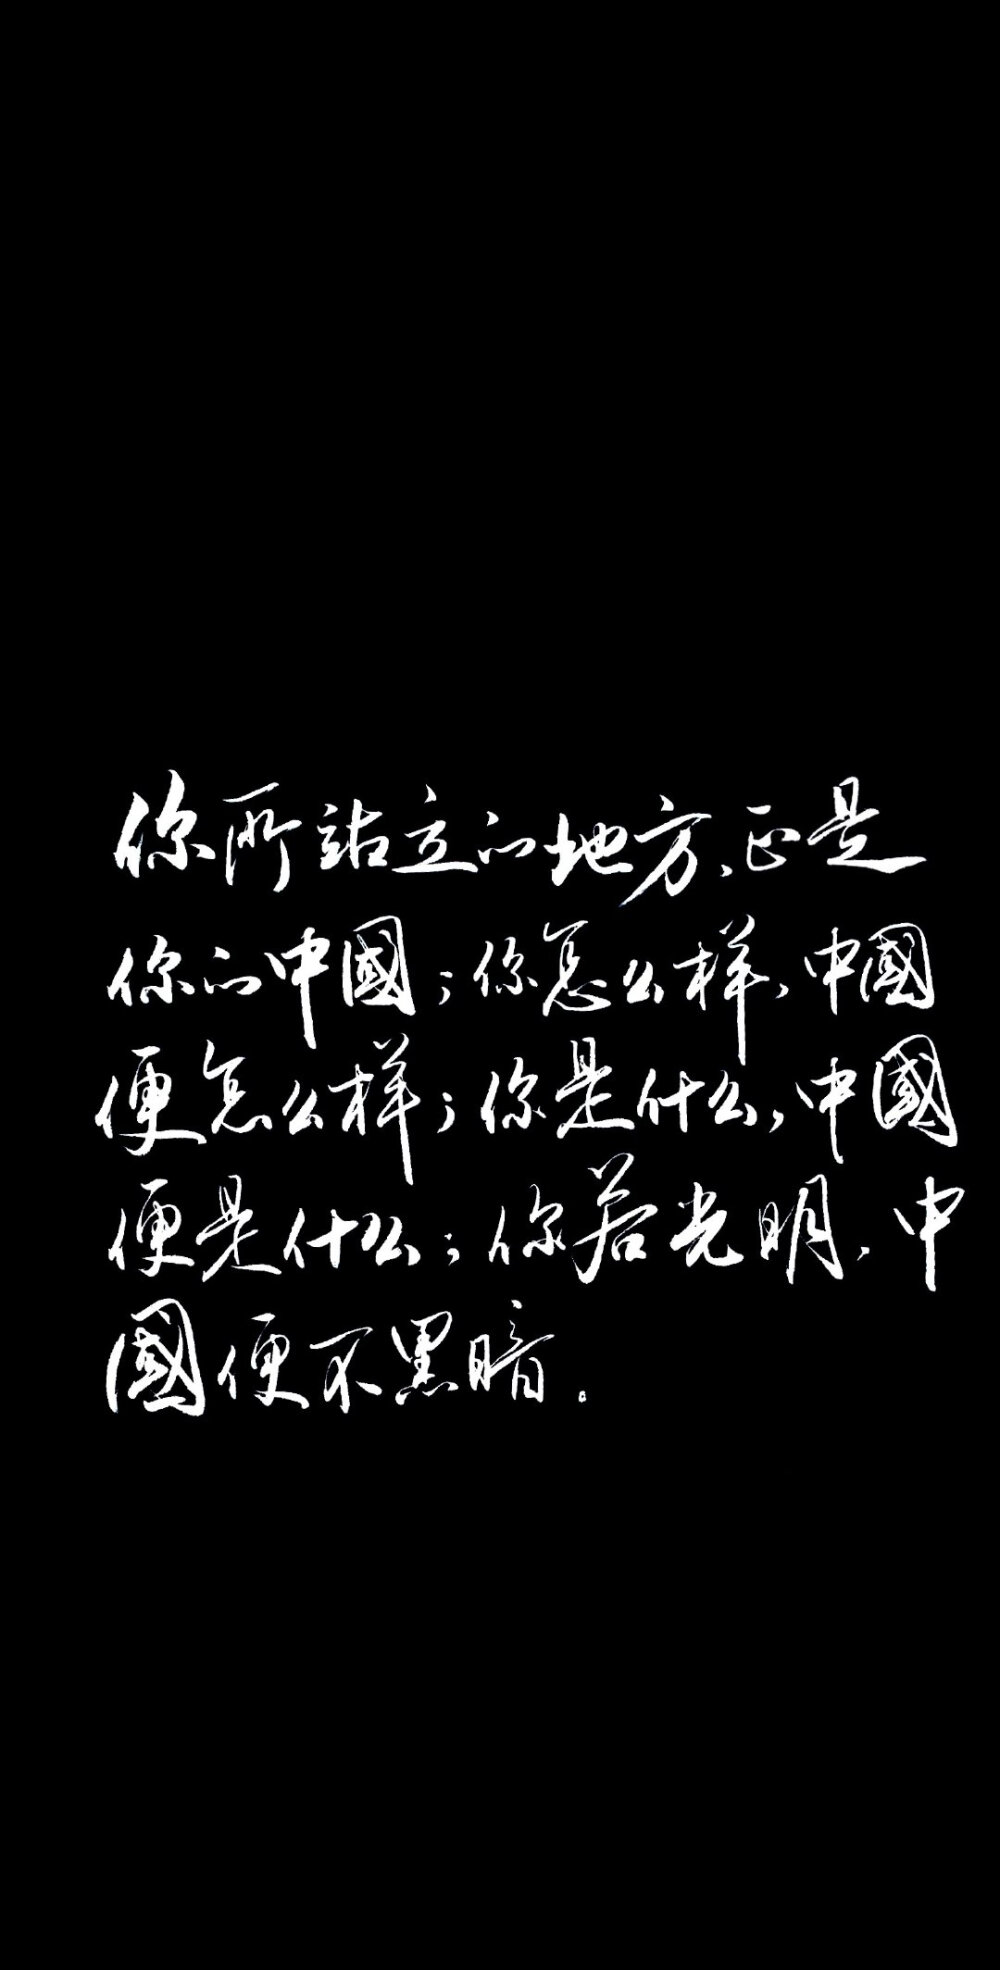 你所站立的地方，正是
你的中國；你怎么样，中國
便怎么样；你是什么，中國
便是什么；你若光明，中
國便不黑暗。